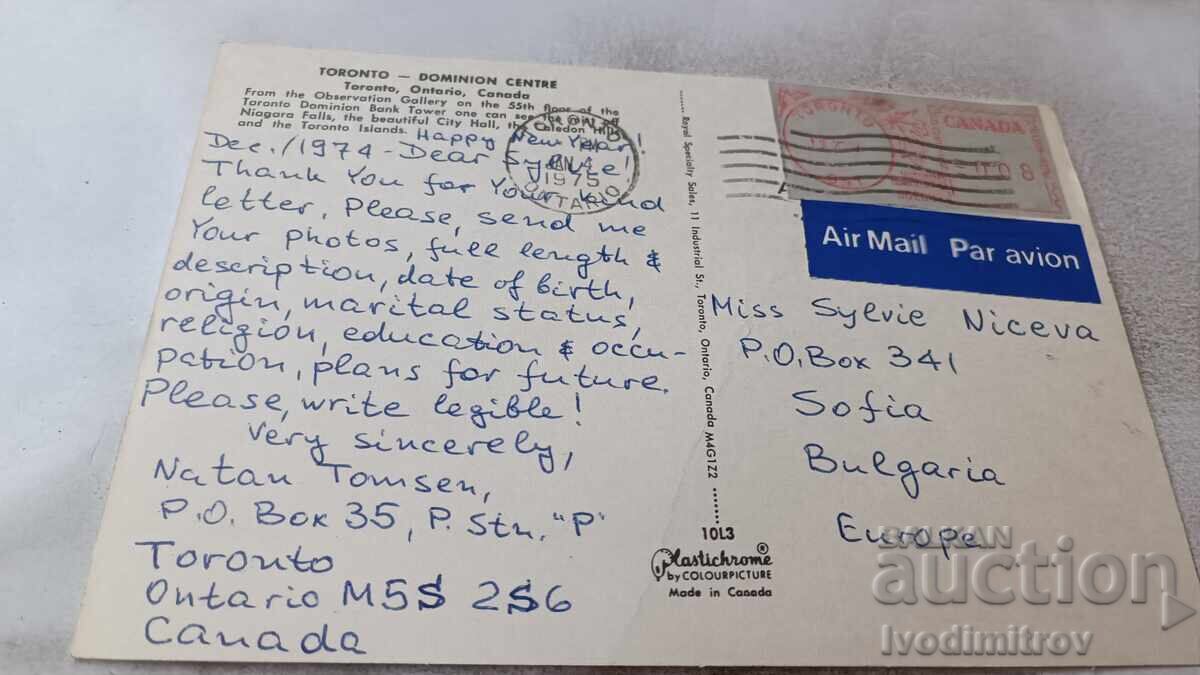 TORONTO — DOMINION CENTRE
Toronto, Ontario, Canada
From the Observation Gallery on the 55th floor of the
Toronto Dominion Bank Tower one can see the
Niagara Falls, the beautiful City Hall, the Caledon Hills
and the Toronto Islands.
Happy New Year!
Dec./1974 - Dear Sylvie!
Thank You for Your kind
letter. Please, send me
Your photos, full length &
description, date of birth,
origin, marital status,
religion, education & occu-
pation, plans for future.
Please, write legible!
Very sincerely,
Natan Tomsen,
P.O. Box 35, P. Stn. "P"
Toronto
Ontario M5S 2S6
Canada
1975
ONTARIO
Royal Specialty Sales, 11 Industrial St., Toronto, Ontario, Canada M4G1Z2
10L3
Plastichrome®
by COLOURPICTURE
Made in Canada
TORONTO
CANADA
08
Air Mail Par avion
Miss Sylvie Niceva
P.O. Box 341
Sofia
Bulgaria
Europe
BALKAN
auction
Ivodimitrov